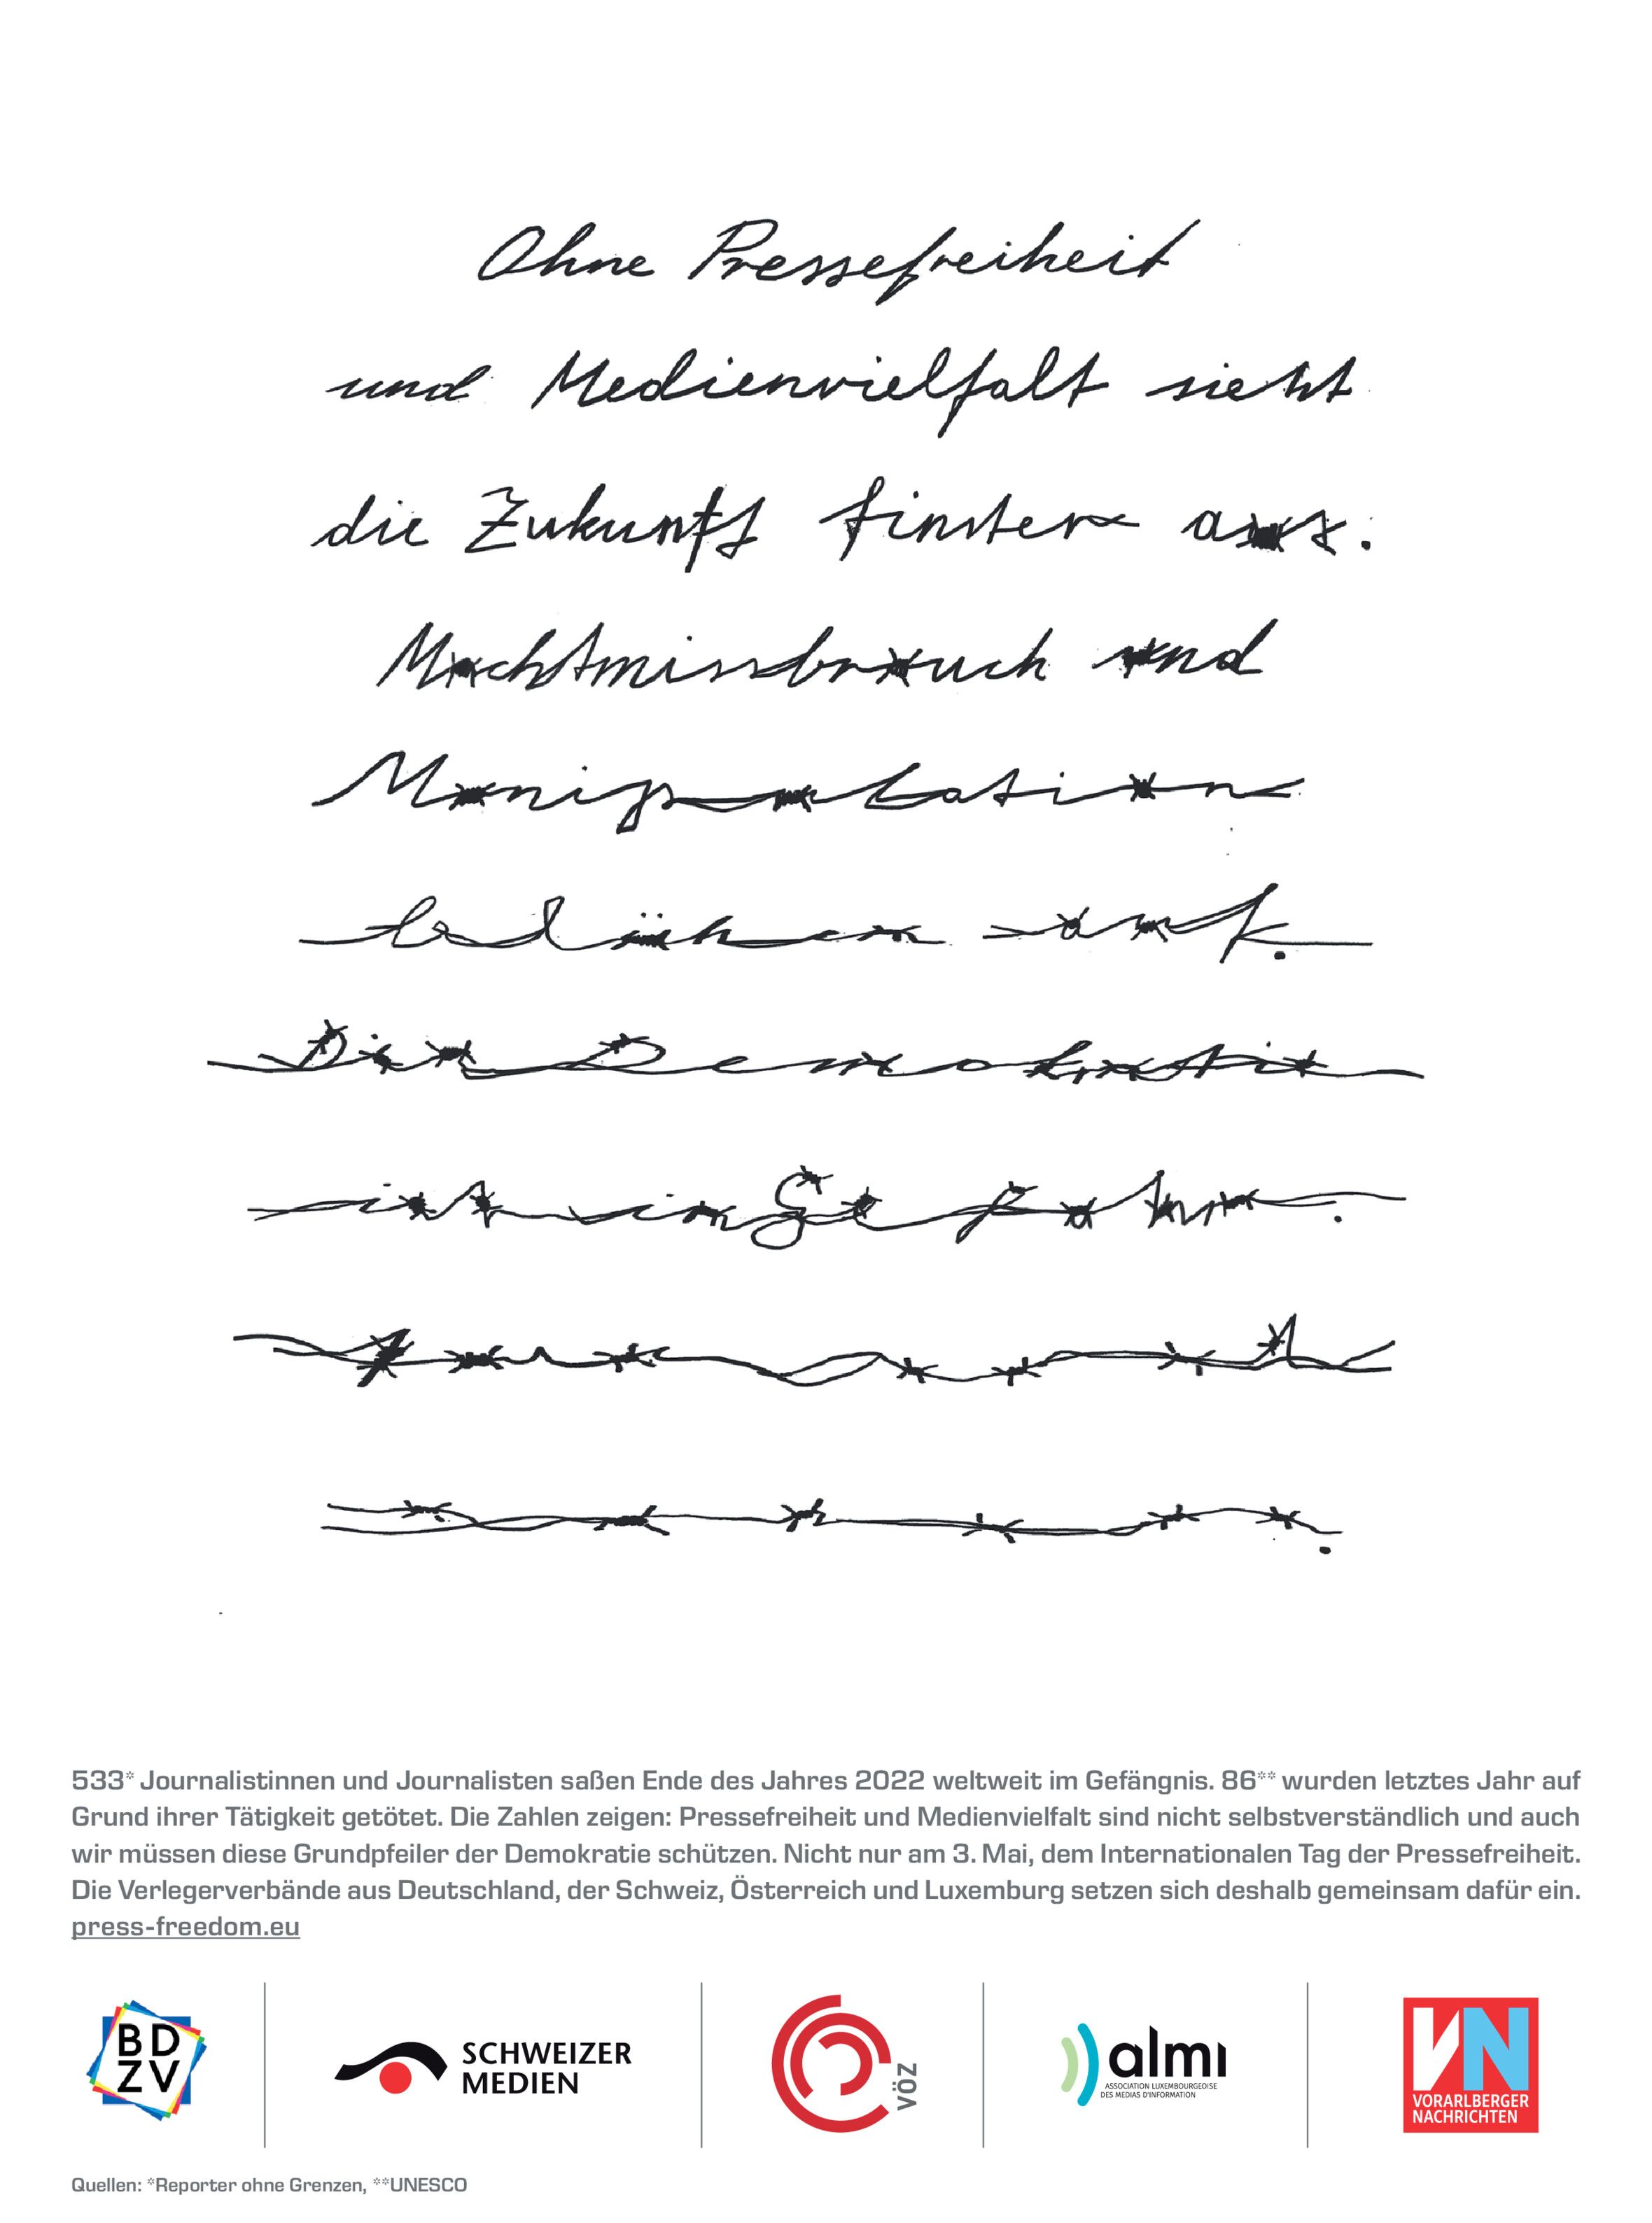 Ohne Pressefreiheit
und Medienvielfalt sieht
die Zukunft finster aus.
Machtmissbrauch und
Manipulation
blühen auf.
Die Demokratie
ist in Gefahr.
533* Journalistinnen und Journalisten saßen Ende des Jahres 2022 weltweit im Gefängnis. 86** wurden letztes Jahr auf
Grund ihrer Tätigkeit getötet. Die Zahlen zeigen: Pressefreiheit und Medienvielfalt sind nicht selbstverständlich und auch
wir müssen diese Grundpfeiler der Demokratie schützen. Nicht nur am 3. Mai, dem Internationalen Tag der Pressefreiheit.
Die Verlegerverbände aus Deutschland, der Schweiz, Österreich und Luxemburg setzen sich deshalb gemeinsam dafür ein.
press-freedom.eu
BD
ZV
SCHWEIZER
MEDIEN
VÖZ
almi
ASSOCIATION LUXEMBOURGEOISE
DES MEDIAS D'INFORMATION
VN
VORARLBERGER
NACHRICHTEN
Quellen: *Reporter ohne Grenzen, **UNESCO